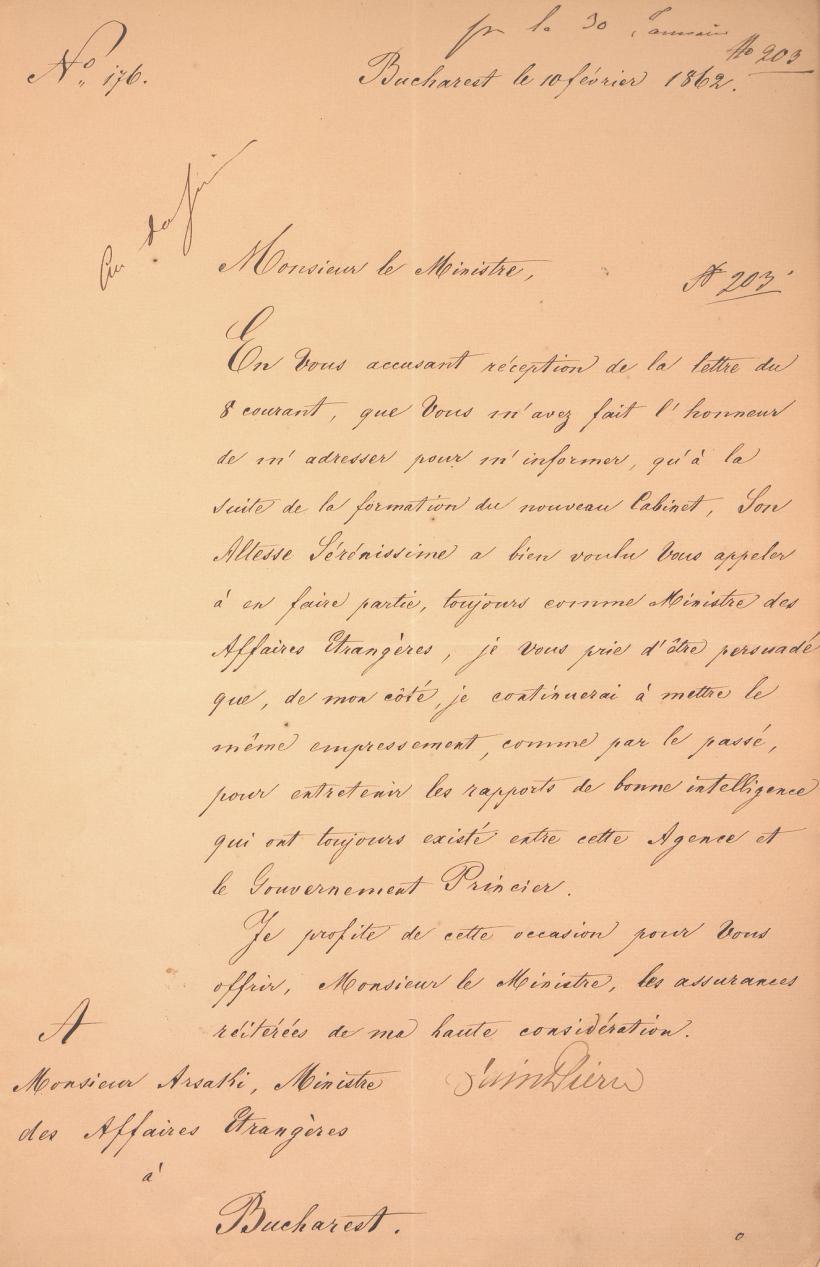 pr le 30 Janvier
No 203
No 176.
Bucharest le 10 février 1862.
Au dossier
Monsieur le Ministre,
No 203
En Vous accusant réception de la lettre du
8 courant, que Vous m'avez fait l'honneur
de m'adresser pour m'informer, qu'à la
suite de la formation du nouveau Cabinet, Son
Altesse Sérénissime a bien voulu Vous appeler
à en faire partie, toujours comme Ministre des
Affaires Etrangères, je vous prie d'être persuadé
que, de mon côté, je continuerai à mettre le
même empressement, comme par le passé,
pour entretenir les rapports de bonne intelligence
qui ont toujours existé entre cette Agence et
le Gouvernement Princier.
Je profite de cette occasion pour Vous
offrir, Monsieur le Ministre, les assurances
réitérées de ma haute considération.
A
Monsieur Arsaki, Ministre
des Affaires Etrangères
à
Bucharest.